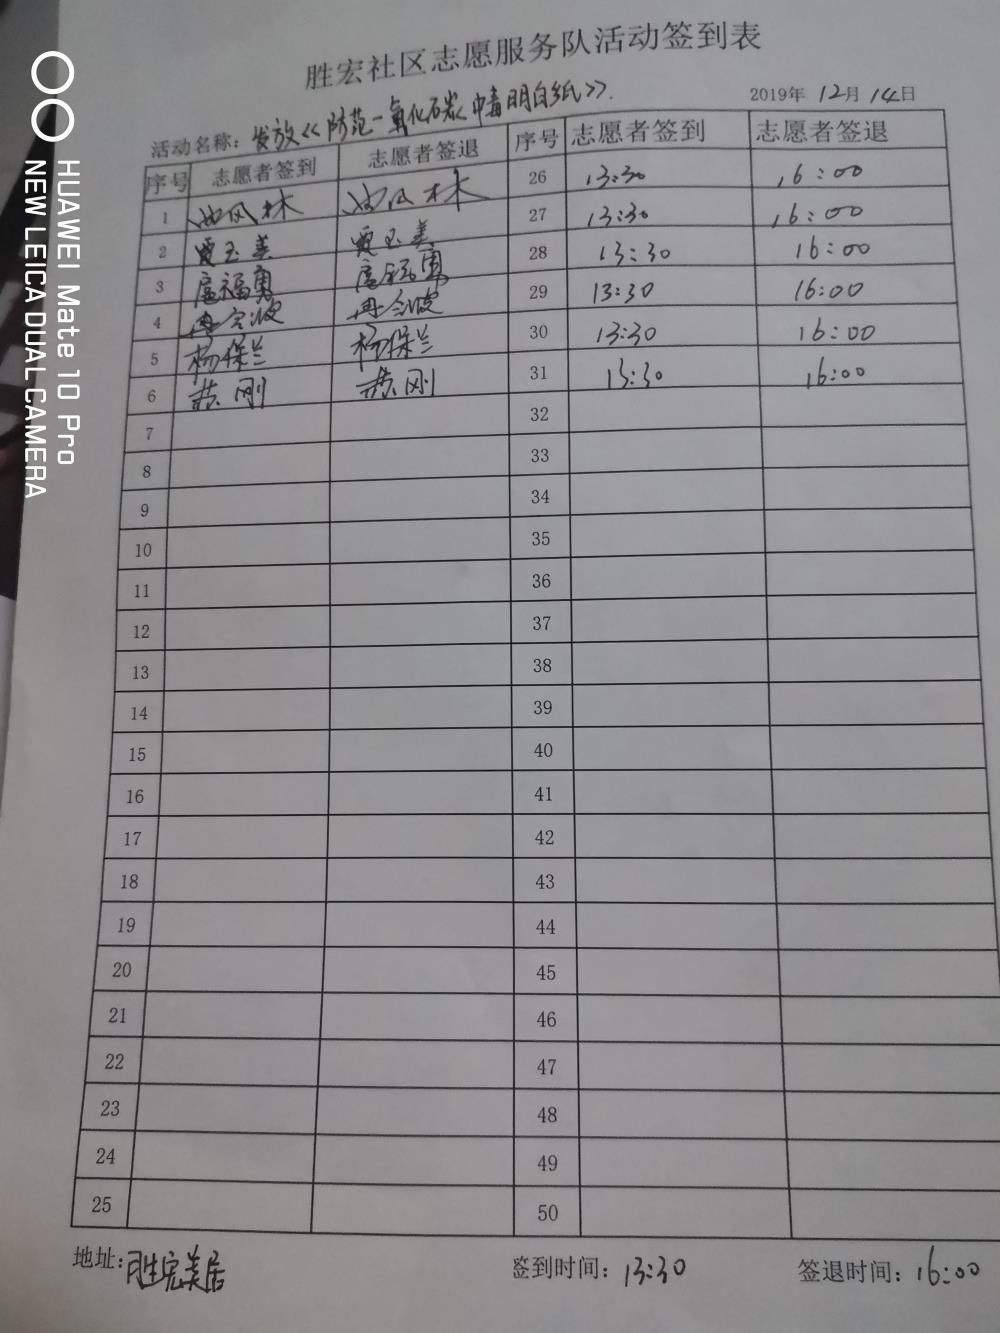 胜宏社区志愿服务队活动签到表
2019年 12月 14日
活动名称：发放《防范一氧化碳中毒明白纸》.
序号 志愿者签到 志愿者签退 序号 志愿者签到 志愿者签退
1 风林 风林 26 13:30 16:00
2 贾玉美 贾玉美 27 13:30 16:00
3 扈福勇 扈福勇 28 13:30 16:00
4 冉会波 冉会波 29 13:30 16:00
5 杨保兰 杨保兰 30 13:30 16:00
6 苏刚 苏刚 31 13:30 16:00
7 32
8 33
9 34
10 35
11 36
12 37
13 38
14 39
15 40
16 41
17 42
18 43
19 44
20 45
21 46
22 47
23 48
24 49
25 50
地址：胜宏美居 签到时间：13:30 签退时间：16:00
HUAWEI Mate 10 Pro
NEW LEICA DUAL CAMERA